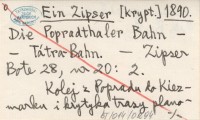 Ein Zipser [krypt.] 1890.
Die Popradthaler Bahn –
– Tátra-Bahn. – Zipser
Bote 28, nr 20: 2.
Kolej z Popradu do Kież-
marku i krytyka trasy plano-